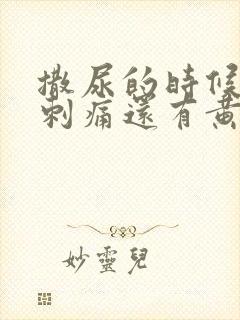 撒尿的時候
刺痛還有黃
妙靈兒